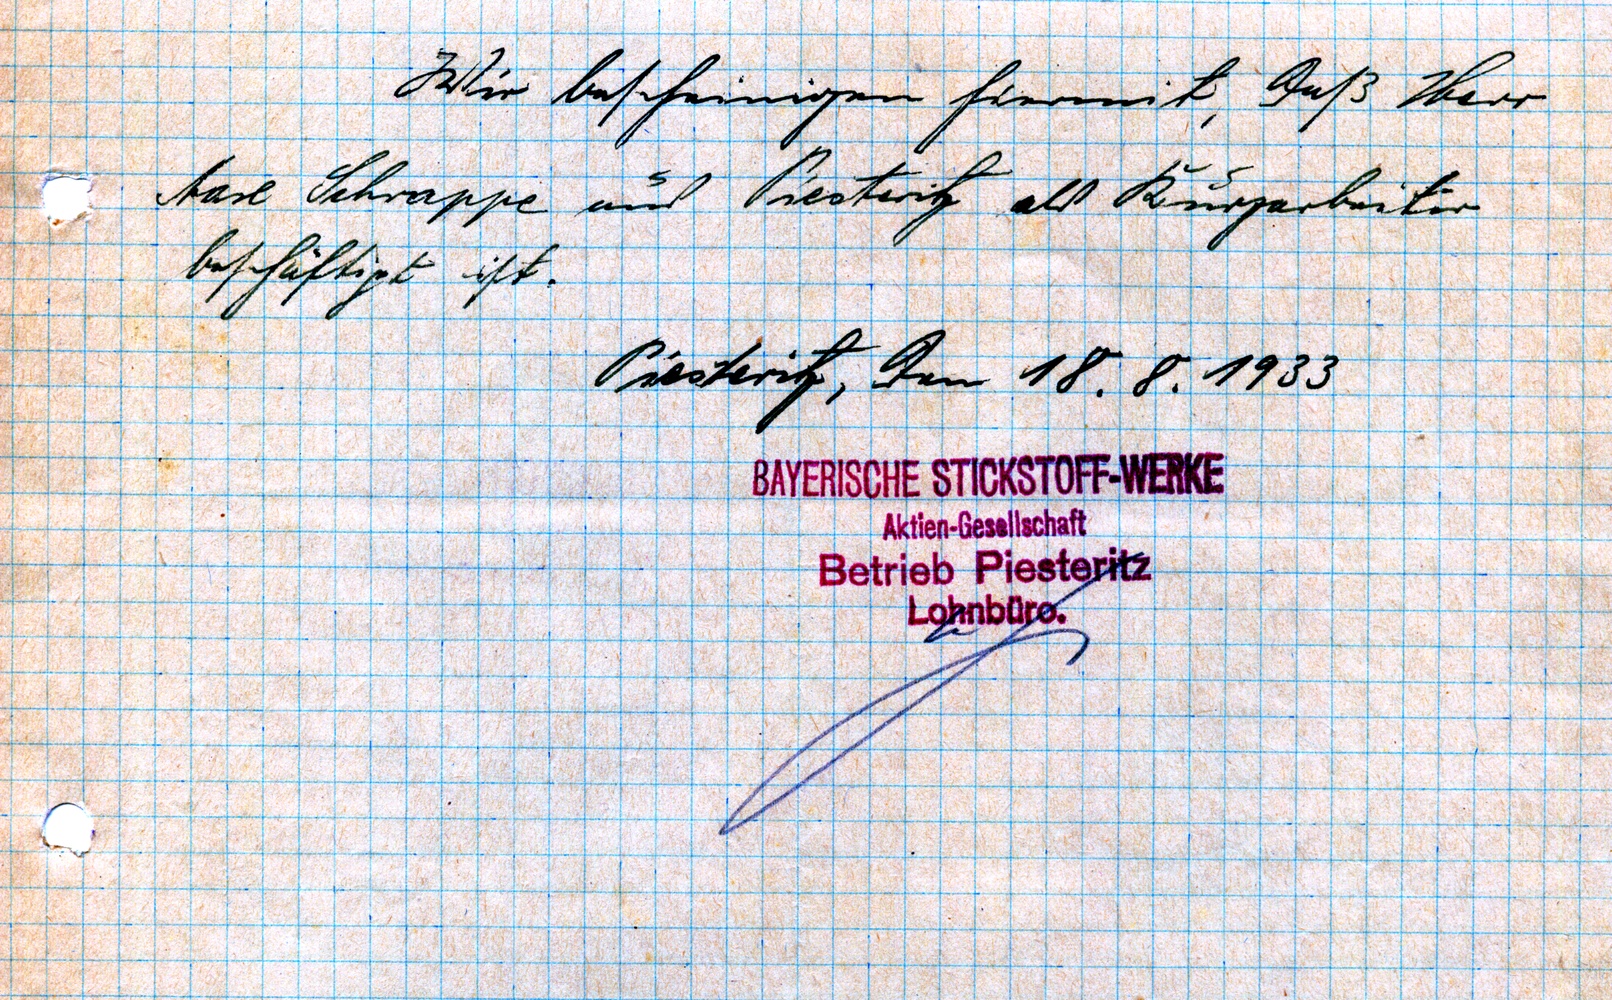 Wir bescheinigen hiermit, daß Herr
Max Schrappe aus Piesteritz als Kurzarbeiter
beschäftigt ist.
Piesteritz, den 18. 8. 1933
BAYERISCHE STICKSTOFF-WERKE
Aktien-Gesellschaft
Betrieb Piesteritz
Lohnbüro.